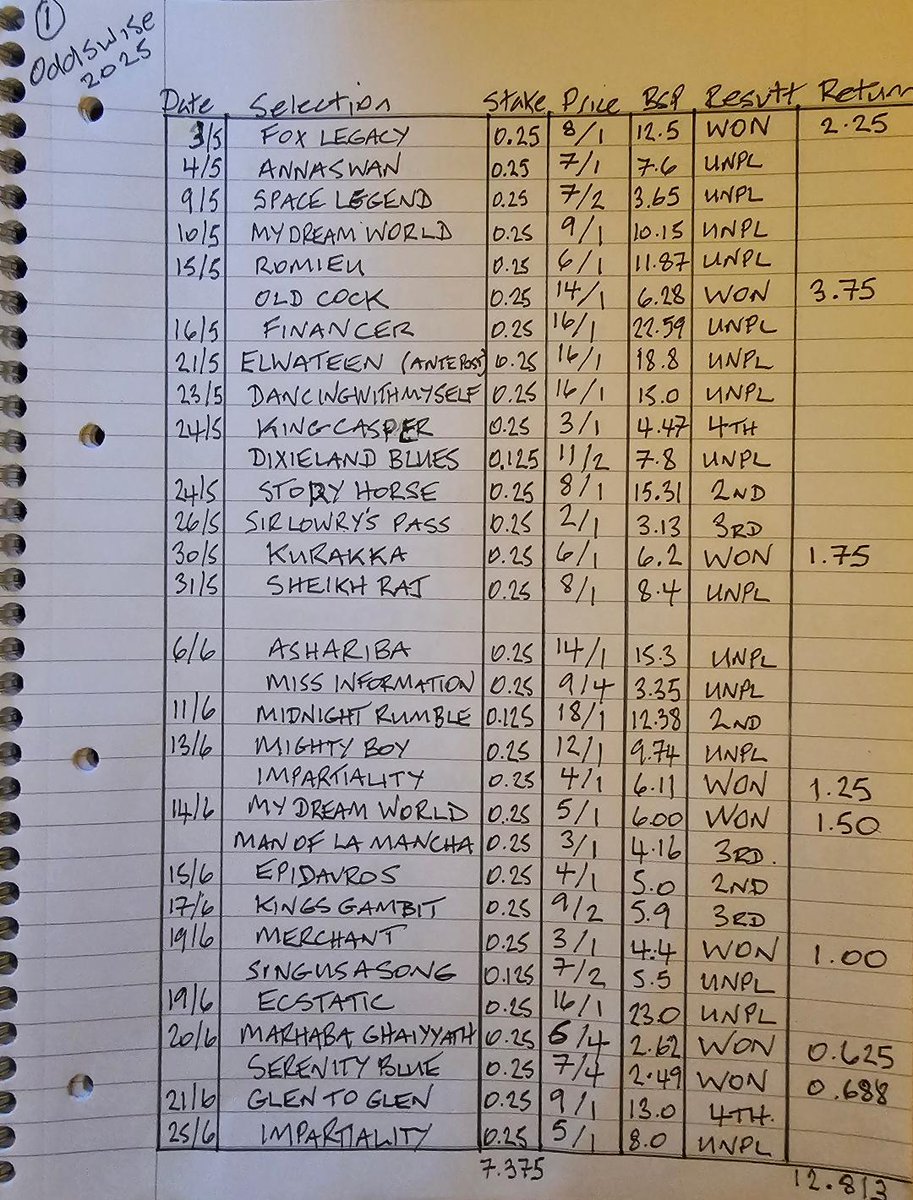 1
Oddswise
2025
Date Selection Stake Price BSP Result Return
3/5 FOX LEGACY 0.25 8/1 12.5 WON 2.25
4/5 ANNASWAN 0.25 7/1 7.6 UNPL
9/5 SPACE LEGEND 0.25 7/2 3.65 UNPL
10/5 MY DREAM WORLD 0.25 9/1 10.15 UNPL
15/5 ROMIEU 0.25 6/1 11.87 UNPL
OLD COCK 0.25 14/1 6.28 WON 3.75
16/5 FINANCER 0.25 16/1 22.59 UNPL
21/5 ELWATEEN (ANTEPOST) 0.25 16/1 18.8 UNPL
23/5 DANCINGWITHMYSELF 0.25 16/1 15.0 UNPL
24/5 KING CASPER 0.25 3/1 4.47 4TH
DIXIELAND BLUES 0.125 11/2 7.8 UNPL
24/5 STORY HORSE 0.25 8/1 15.31 2ND
26/5 SIR LOWRY'S PASS 0.25 2/1 3.13 3RD
30/5 KURAKKA 0.25 6/1 6.2 WON 1.75
31/5 SHEIKH RAJ 0.25 8/1 8.4 UNPL
6/6 ASHARIBA 0.25 14/1 15.3 UNPL
MISS INFORMATION 0.25 9/4 3.35 UNPL
11/6 MIDNIGHT RUMBLE 0.125 18/1 12.38 2ND
13/6 MIGHTY BOY 0.25 12/1 9.74 UNPL
IMPARTIALITY 0.25 4/1 6.11 WON 1.25
14/6 MY DREAM WORLD 0.25 5/1 6.00 WON 1.50
MAN OF LA MANCHA 0.25 3/1 4.16 3RD.
15/6 EPIDAVROS 0.25 4/1 5.0 2ND
17/6 KINGS GAMBIT 0.25 9/2 5.9 3RD
19/6 MERCHANT 0.25 3/1 4.4 WON 1.00
SINGUSASONG 0.125 7/2 5.5 UNPL
19/6 ECSTATIC 0.25 16/1 23.0 UNPL
20/6 MARHABA GHAIYYATH 0.25 6/4 2.62 WON 0.625
SERENITY BLUE 0.25 7/4 2.49 WON 0.688
21/6 GLEN TO GLEN 0.25 9/1 13.0 4TH.
25/6 IMPARTIALITY 0.25 5/1 8.0 UNPL
7.375 12.813